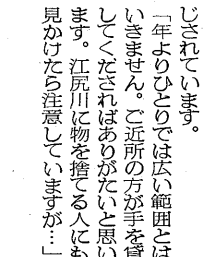 じされています。
「年よりひとりでは広い範囲とは
いきません。ご近所の方が手を貸
してくだされはありがたいと思い
ます。江尻川に物を捨てる人にも
見かけたら注意していますが…」